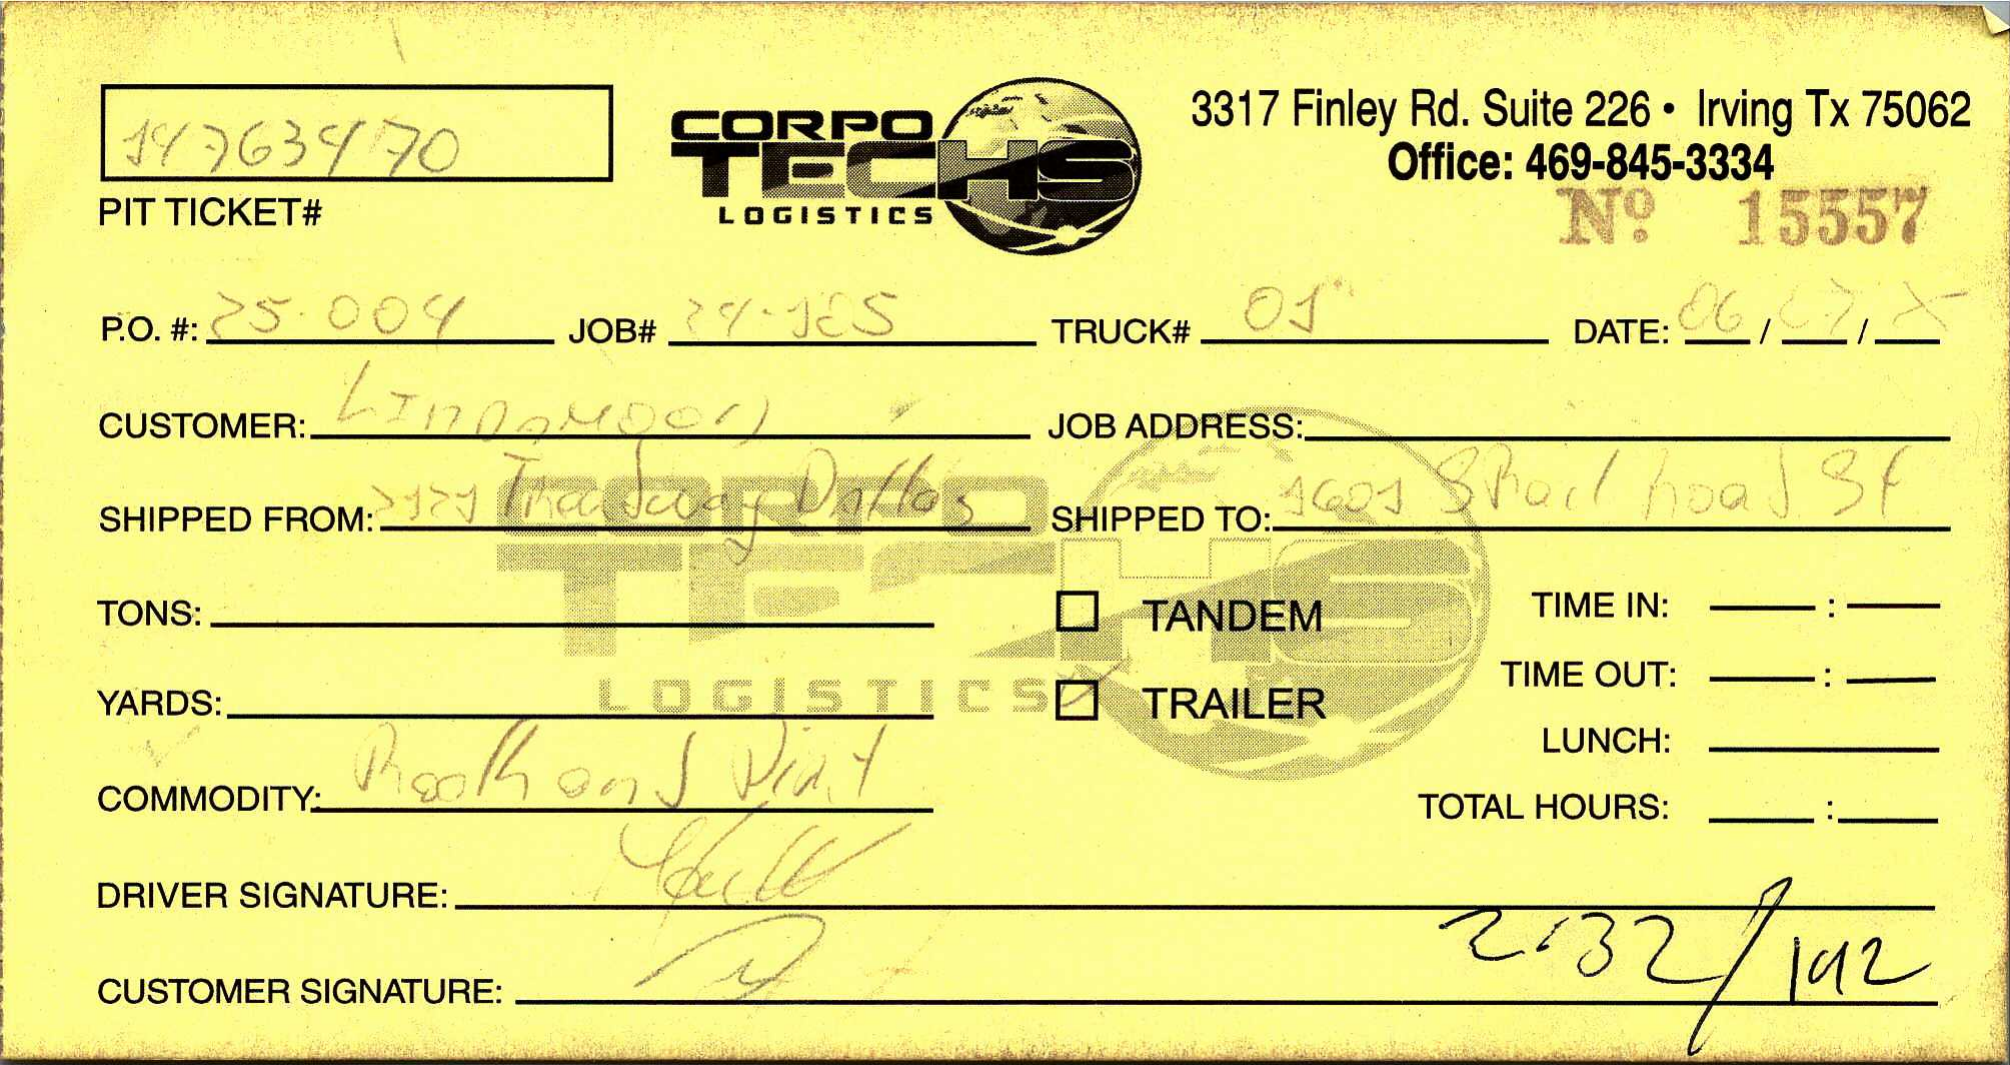 14763470
PIT TICKET#
CORPO
TECHS
LOGISTICS
3317 Finley Rd. Suite 226 • Irving Tx 75062
Office: 469-845-3334
Nº 15557
P.O. #: 25-004 JOB# 24-125 TRUCK# 01 DATE: 06 / /
CUSTOMER: JOB ADDRESS:
SHIPPED FROM: 2121 Treadway Dallas SHIPPED TO: 1601 S Rail road St
CORPO
TECHS
LOGISTICS
TONS: TANDEM TIME IN: :
YARDS: TRAILER TIME OUT: :
LUNCH:
COMMODITY: and TOTAL HOURS: :
DRIVER SIGNATURE:
CUSTOMER SIGNATURE: 2:32/